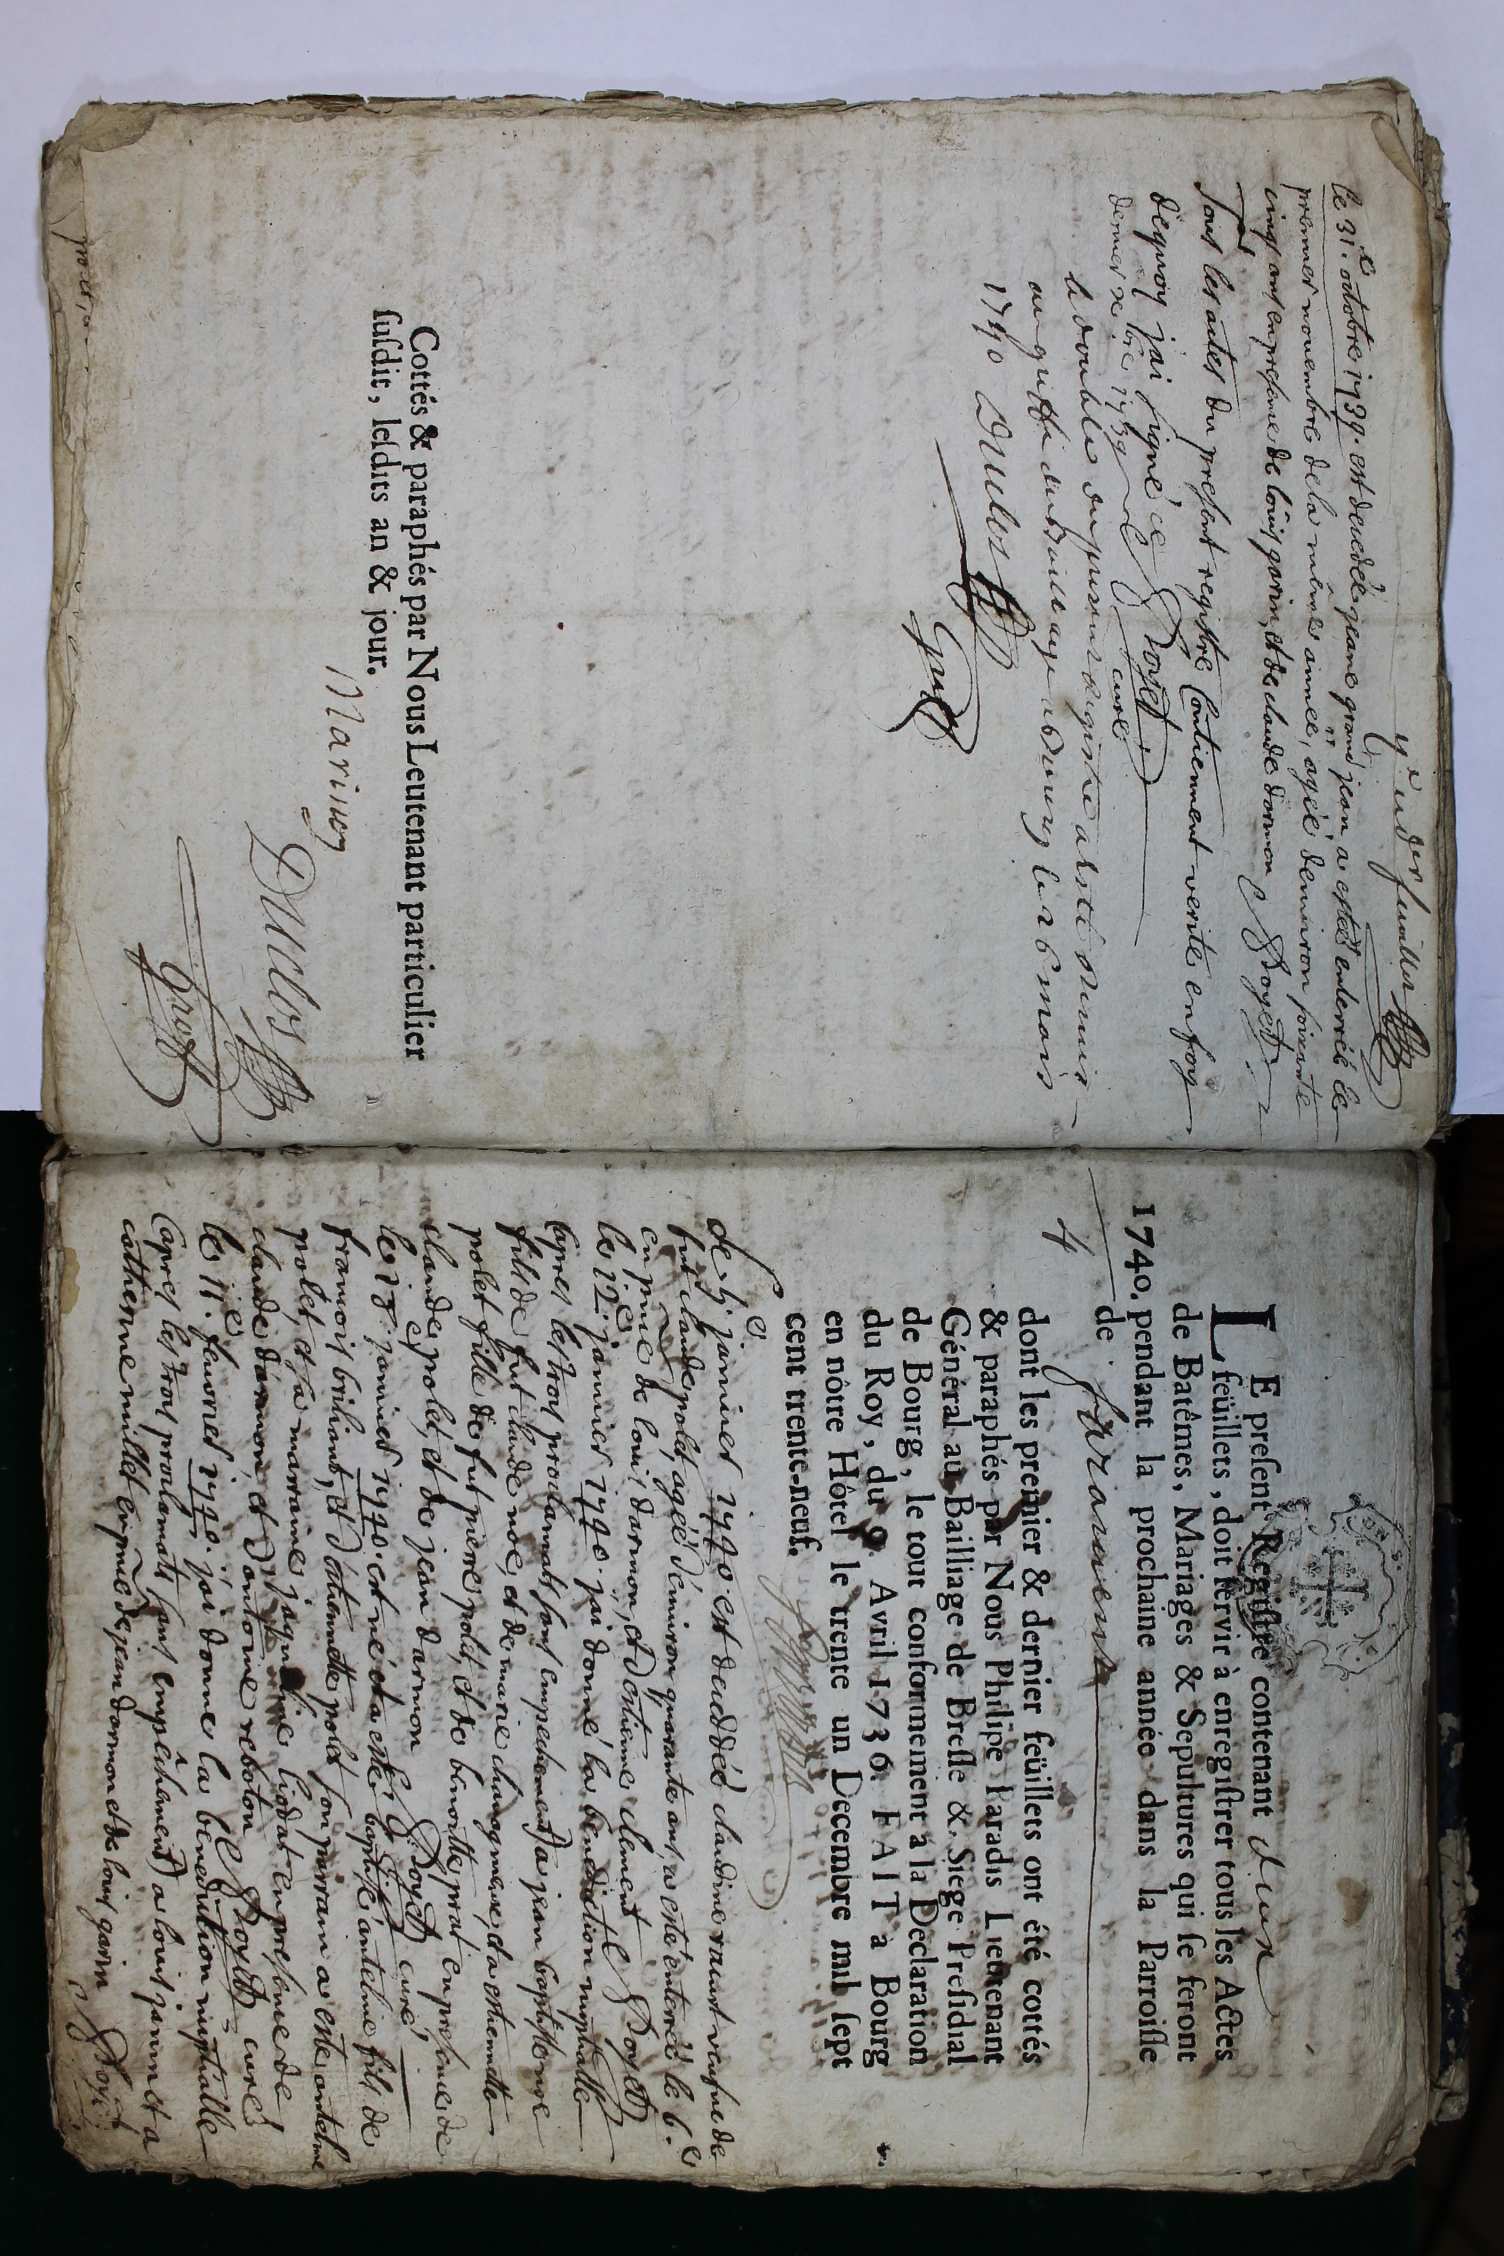 4e et der feuillet
le 31e octobre 1739. est decedée jeane grand jean, a estée enterrée le
premier novembre de la même année, agée denviron soixante
cinq ans en presence de loüis garin, et de claude dormon Doyet
Tous les actes du present registre Contiennent verité en foy
dequoy jai signé ce
dernier xbre 1739 Doyet curé
le double du present Registre a esté remis
au greffe du Bailliage a Bourg le 26 mars
1740 Duclos
Cottés & paraphés par Nous Leutenant particulier
susdit, lesdits an & jour.
Marinon
Duclos
LE present Registre contenant deux
feüillets, doit servir à enregistrer tous les Actes
de Batêmes, Mariages & Sepultures qui se feront
1740. pendant la prochaine année dans la Parroisse
de
4
dont les premier & dernier feüillets ont été cottés
& paraphés par Nous Philipe Paradis Lieutenant
Général au Bailliage de Bresse & Siége Presidial
de Bourg, le tout conformement à la Declaration
du Roy, du 9. Avril 1736. FAIT a Bourg
en nôtre Hôtel le trente un Decembre mil sept
cent trente-neuf.
Le 5e. janvier 1740. est deceddée claudine ravat veufve de
fut claude polet, agée d'environ quarante ans, a esté enterrée le 6.e
en pnce de louis darmon, et d'estienne clement Doyet
le 12e. janvier 1740. jai donné la benediction nuptialle
apres les trois proclamats sans empechement a jean baptiste noe
fils de fut claude noe, et de marie changneux, et a estiennette
polet fille de fut pierre polet, et de benoitte prat en presence de
claude polet, et de jean darmon Doyet curé
le 23e. janvier 1740. est né et a esté baptisé antelme fils de
francois brilliant, et d'estiennette polet son parrain a esté antelme
polet, et sa marraine jaqueline liodat en presence de
claude darmon, et d'antoine reboton Doyet curé
le 11e. fevrier 1740. jai donné la benediction nuptialle
apres les trois proclamats sans empêchement a louis jannet et a
catherine millet en pnce de jean dormon et de louis garin Doyet